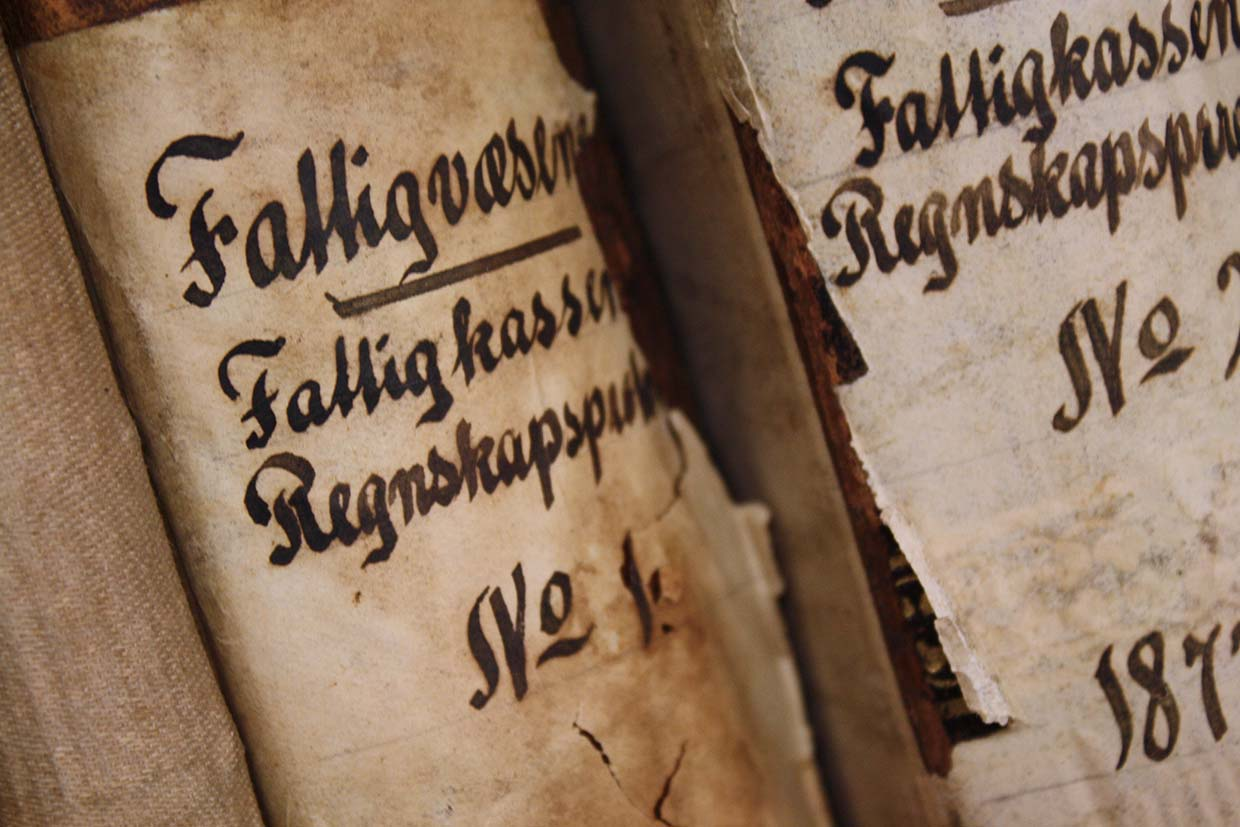 Fattigvæsen
Fattigkassen
Regnskapsp
No 1.
Fattigkassen
Regnskapspr
No
187